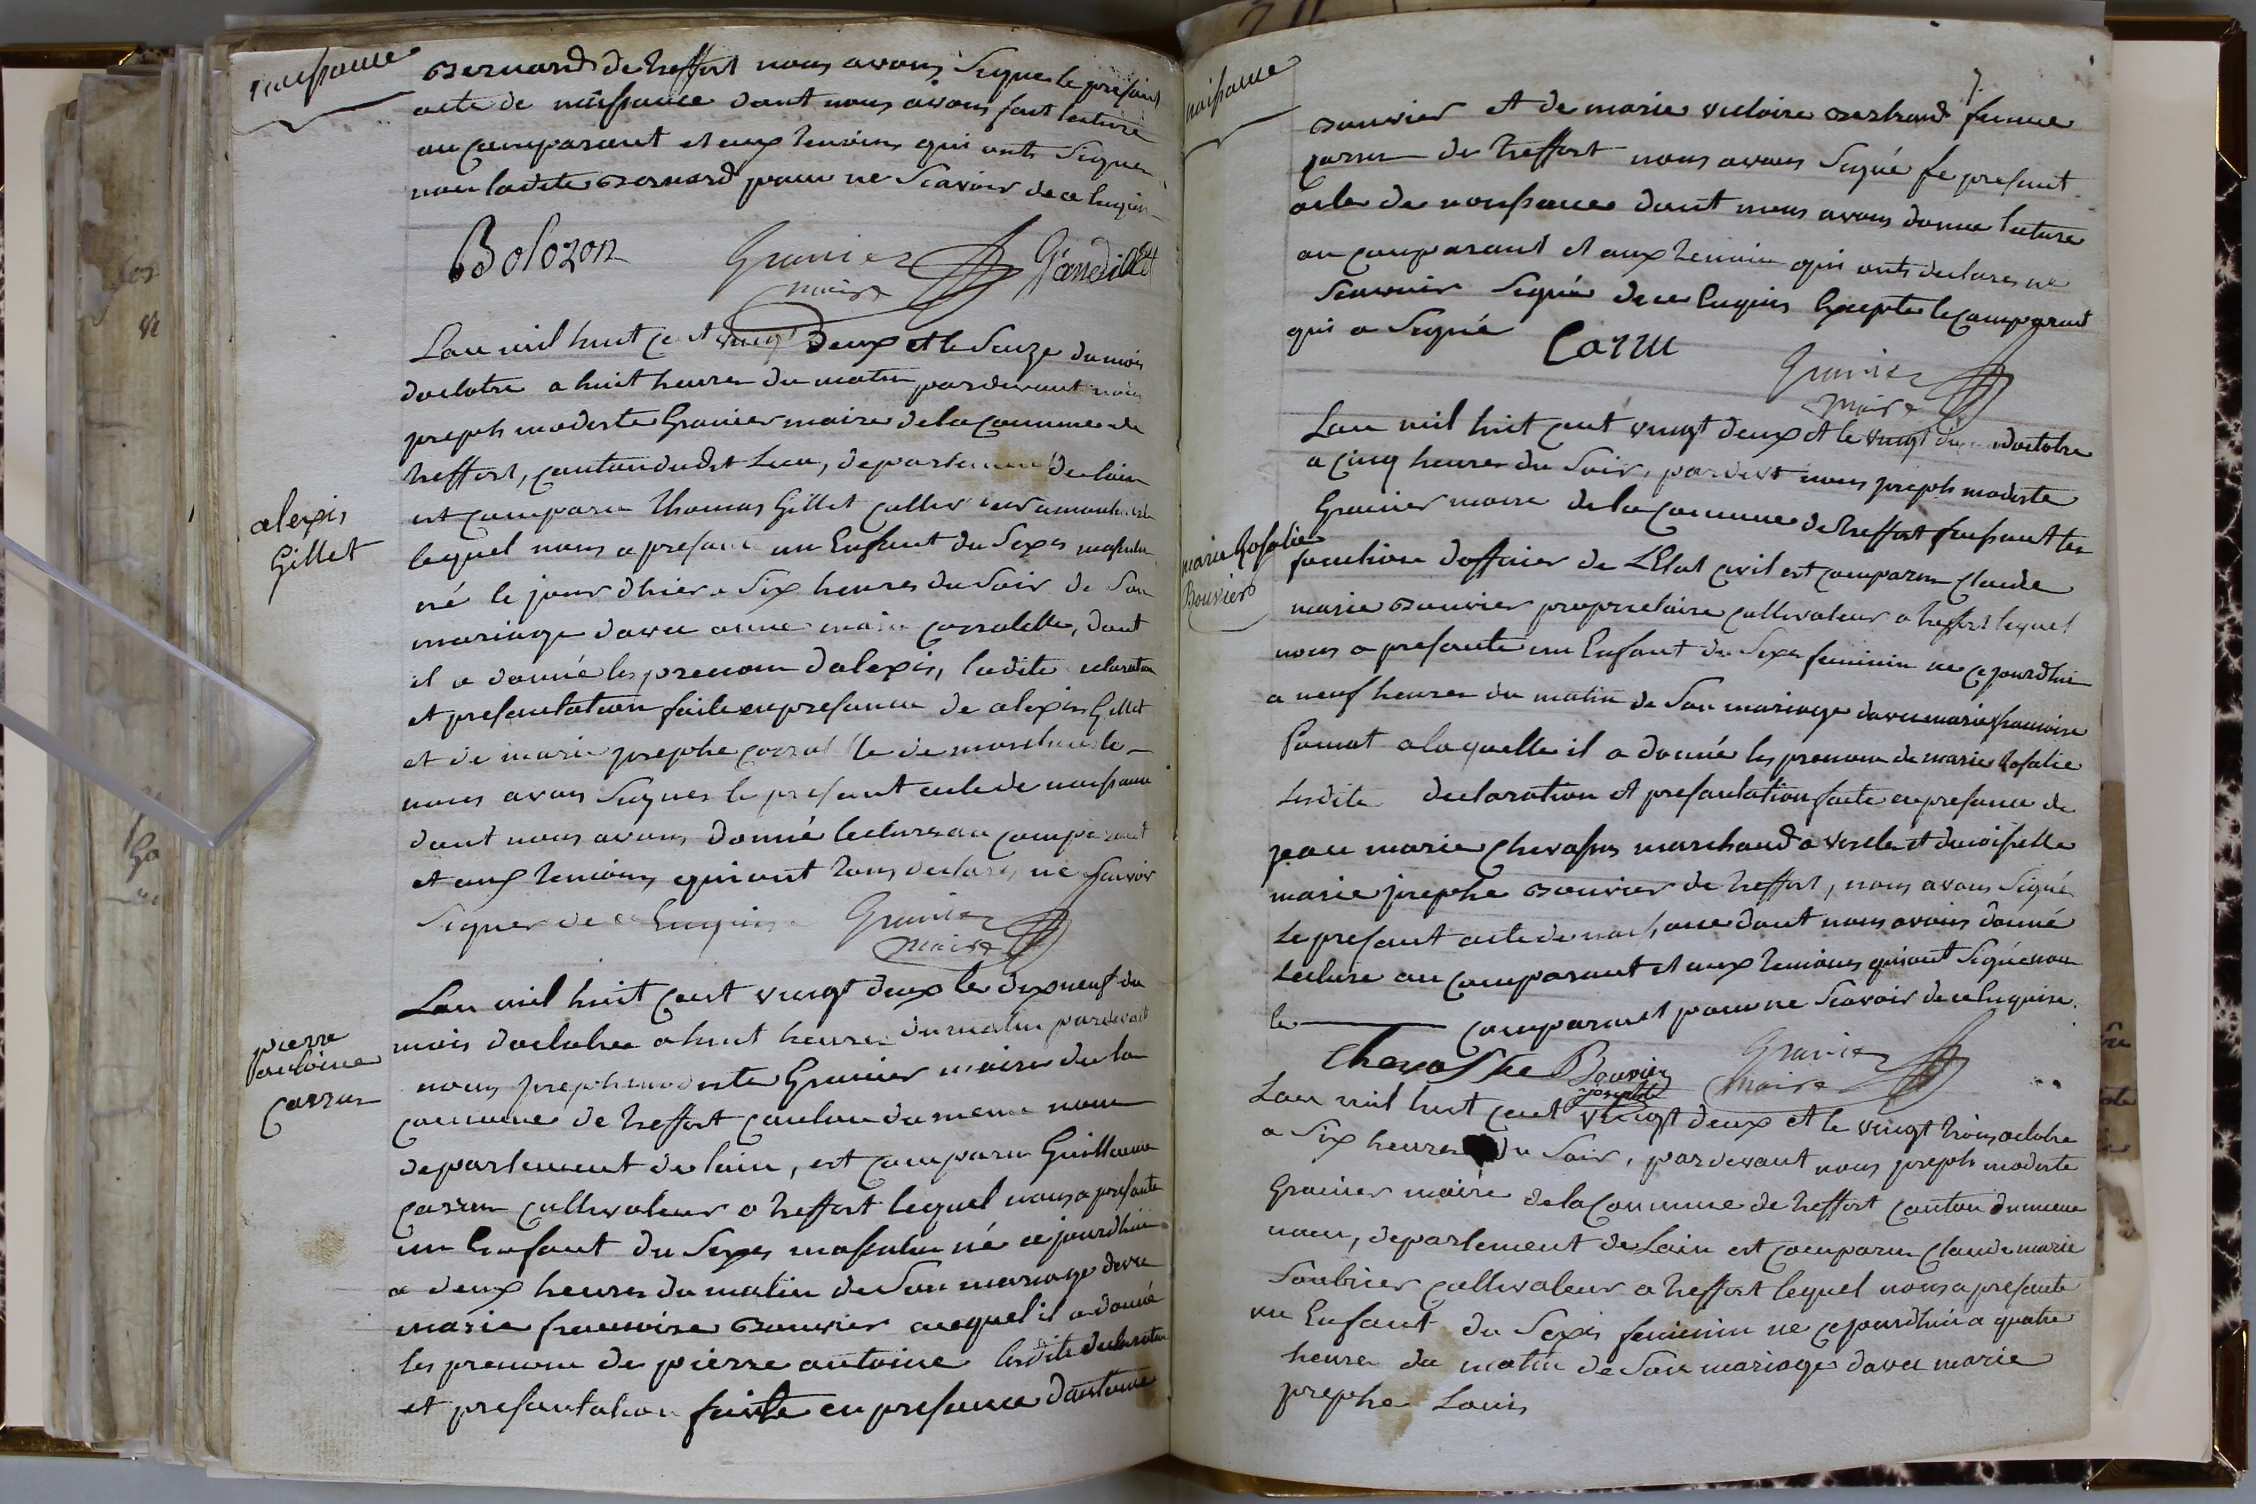 naissance
Bernard de treffort nous avons signe le present
acte de naissance dont nous avons fait lecture
au comparant et aux temoins qui onts signer
non ladite Bernard pour ne scavoir de ce enquis
Bolozon Granier maire Gandillet
Lan mil huit cent vingt deux et le seize du mois
doctobre a huit heures du matin pardevant nous
joseph modeste Granier maire de la commune de
treffort, canton dudit Lieu, departement de lain
est comparu thomas Gillet
alexis
Gillet
lequel nous a presanté un Enfant du Sexes masculin
né le jour dhier a Six heures du Soir de Son
mariage davec anne marie corralette, dont
il a donné les prenom dalexis, ladite declaration
et presantation faite en presance de alexis Gillet
et de marie josephe de
nous avons Signes le presant acte de naissance
dont nous avons donné lecture au comparant
et aux temoins qui ont tous declares ne savoir
signer de ce Enquis Granier
maire
Lan mil huit cent vingt deux le dix neuf du
mois doctobre a huit heures du matin pardevant
pierre
antoine
carru
nous joseph modeste Granier maire de la
commune de treffort canton du meme nom
departement de lain, est comparu Guillaume
carru cultivateur a treffort lequel nous a presante
un Enfant du Sexes masculin né ce jourdhui
a deux heures du matin de Son mariage davec
marie francoise Bouvier auequel il a donné
les prenom de pierre antoine lesdite declaration
et presantation faite en presance dantoine
7.
naissance
Bouvier et de marie victoire Bertrand femme
carru de treffort nous avons Signé le presant
acte de naissance dont nous avons donné lecture
au comparant et aux temoins qui onts declares ne
scavoir signé de ce Enquis Excepte le comparant
qui a Signé Carru
Granier
maire
Lan mil huit cent vingt deux et le vingt doctobre
a cinq heures du Soir, pardevt nous joseph modeste
Granier maire de la commune de treffort faisant les
marie Rosalie
Bouvier
fonction dofficier de LEtat civil est comparu Claude
marie Bouvier proprietaire cultivateur a treffort lequel
nous a presante un Enfant du Sexe feminin ne cejourdhui
a neuf heures du matin de Son mariage davec marie francoise
Pomat a laquelle il a donné les prenom de marie Rosalie
Lesdite declaration et presantation faite en presance de
jean marie Chevassus marchand a et demoiselle
marie josephe Bouvier de treffort, nous avons Signé
Le presant acte de naissance dont nous avons donné
Lecture au comparant et aux temoins qui ont Signé non
le comparant pour ne Scavoir de ce Enquise.
Chevassus Bouvier
josephte Granier
maire
Lan mil huit cent vingt deux et le vingt trois octobre
a Six heures du Soir, pardevant nous joseph modeste
Granier maire de la commune de treffort canton du meme
nom, departement de Lain est comparu Claude marie
Soubrier cultivateur a treffort lequel nous a presante
un Enfant du Sexes feminin ne cejourdhui a quatre
heures du matin de Son mariage davec marie
josephe Louis